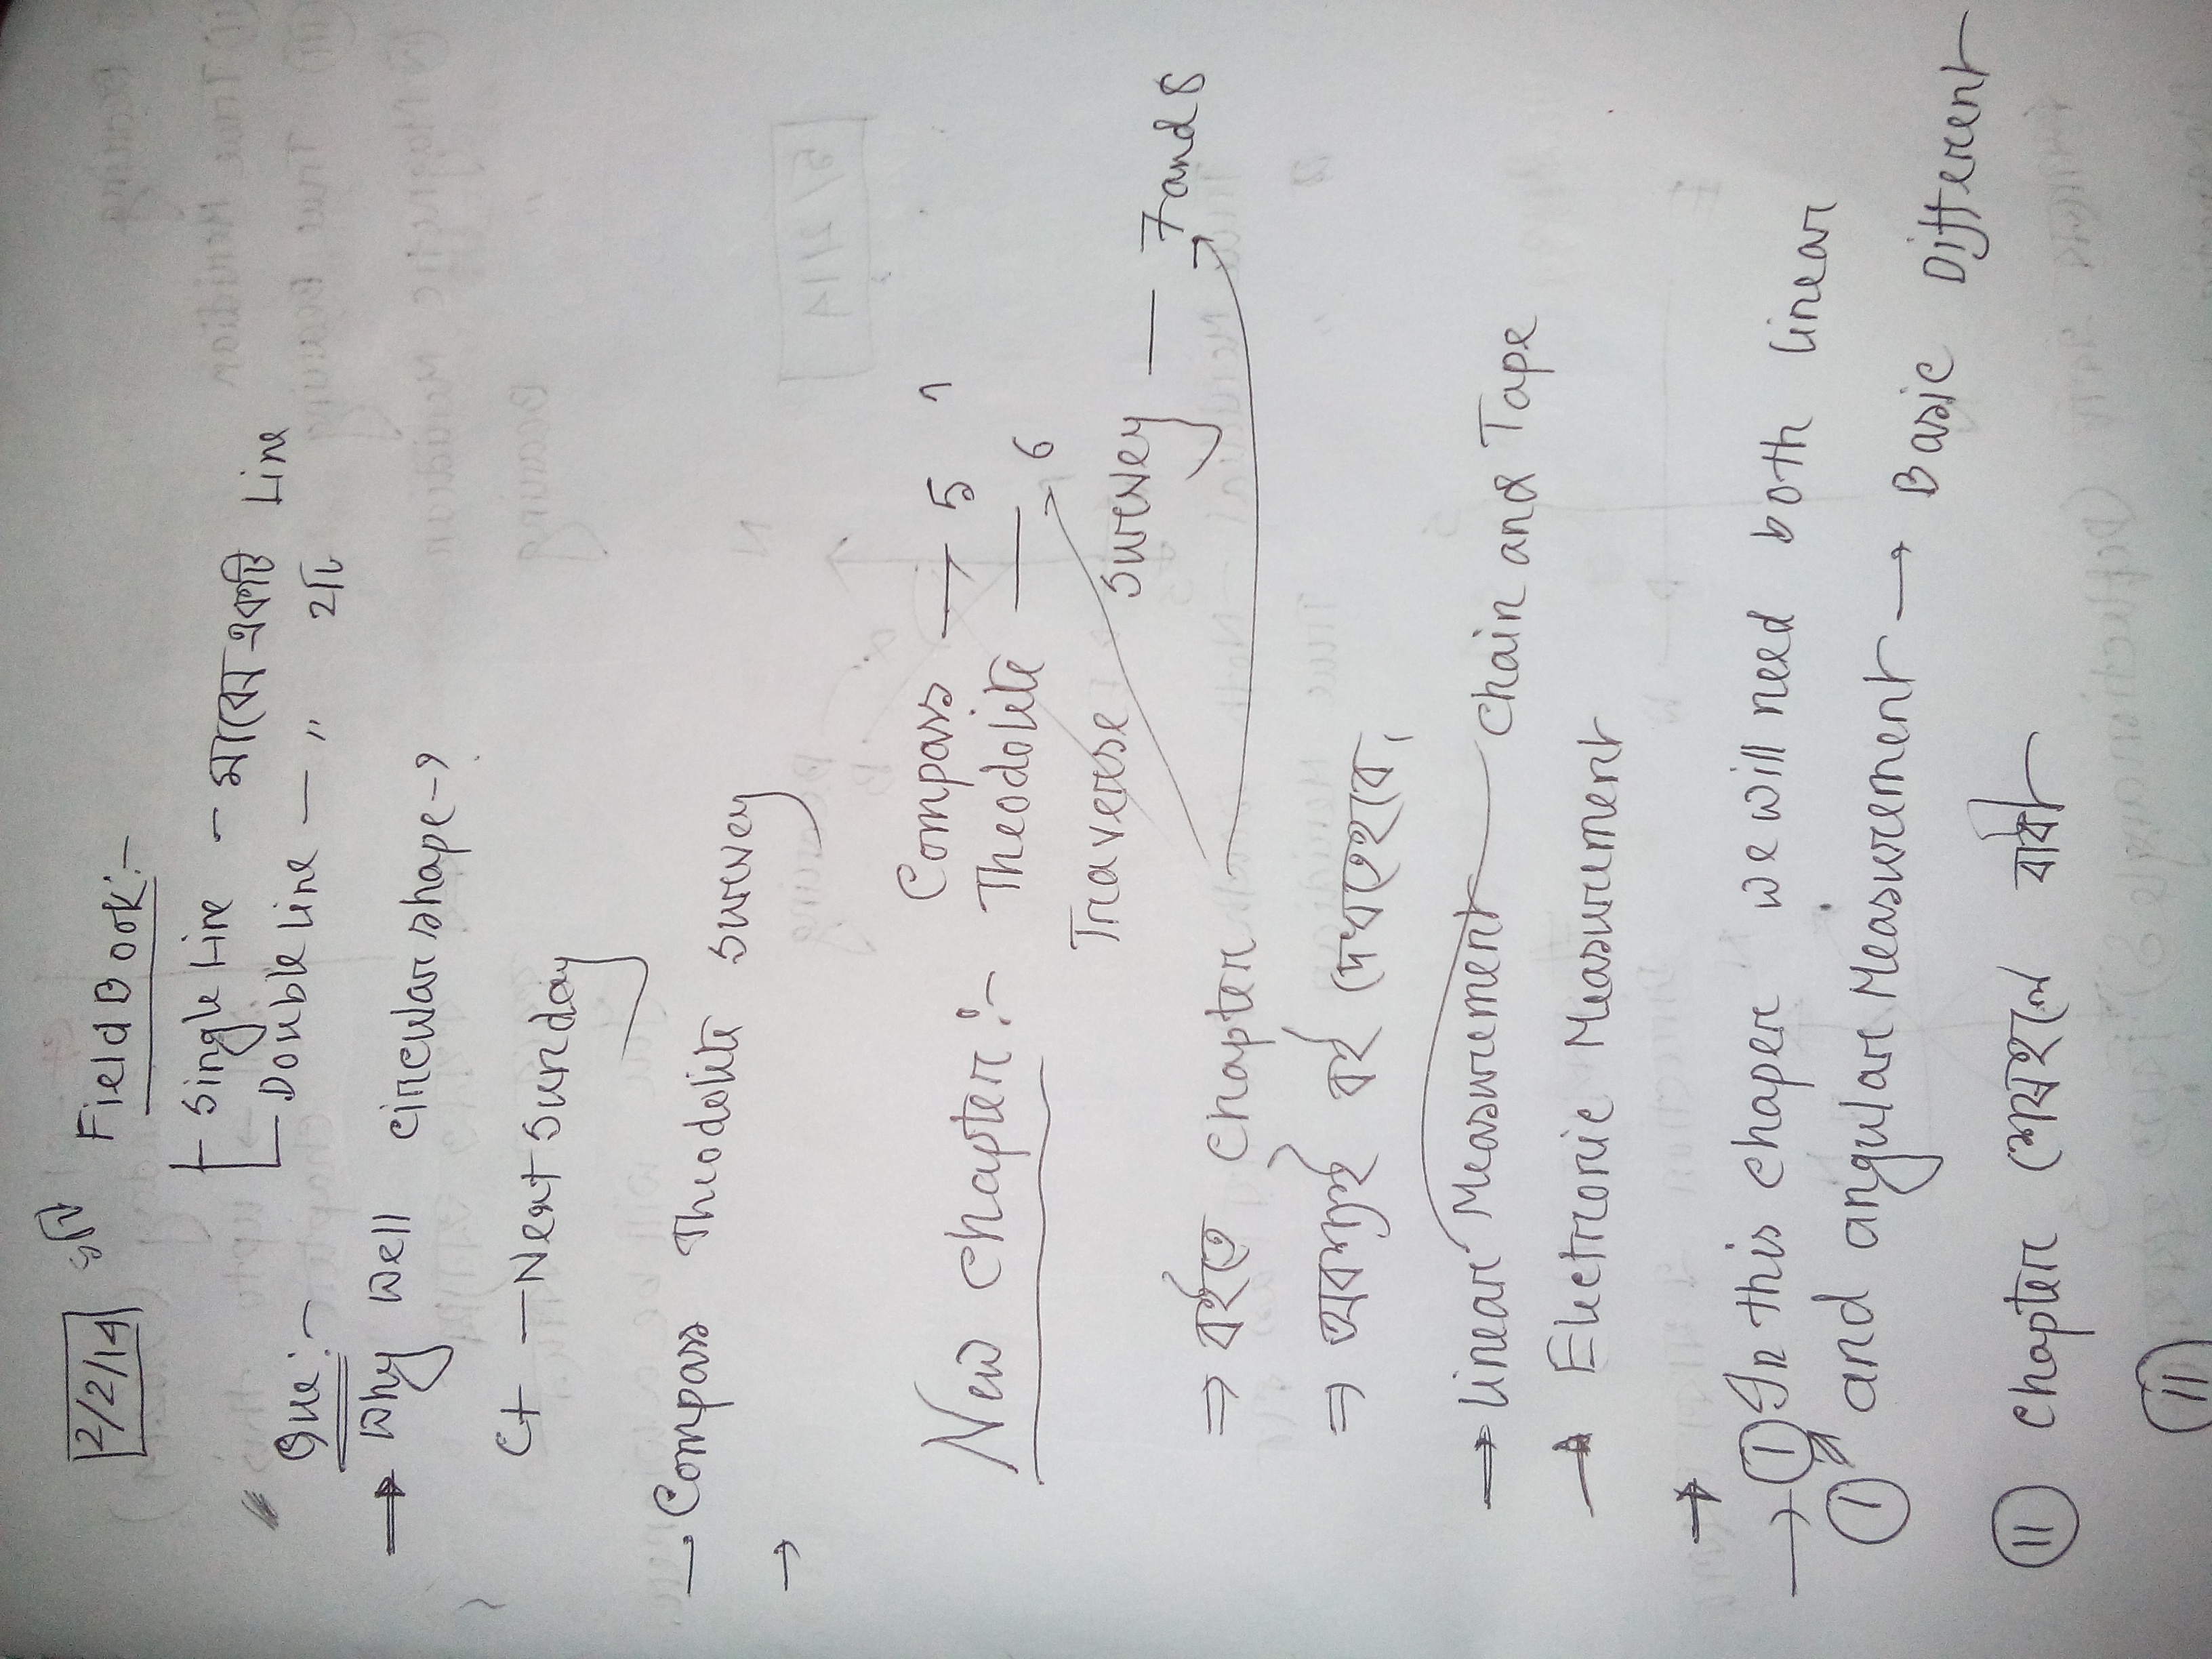 2/2/14
Field Book:-
Single Line - মাঝে একটি Line
Double Line - " 2টি
Que:-
→ Why well circular shape→
Ct — Next Sunday
→ Compass Theodelite Survey
→
New Chapter:- Compass → 5
Theodolite — 6
Traverse Survey — 7 and 8
⇒ বইতে Chapter
⇒ অবশ্যই বই দেখতে হবে,
→ Linear Measurement — Chain and Tape
→ Electronic Measurument
→
→ (I) In this chaper we will need both linear
(I) and angular Measurement → Basic Different
(II) Chapter শেষ হলে
(II)